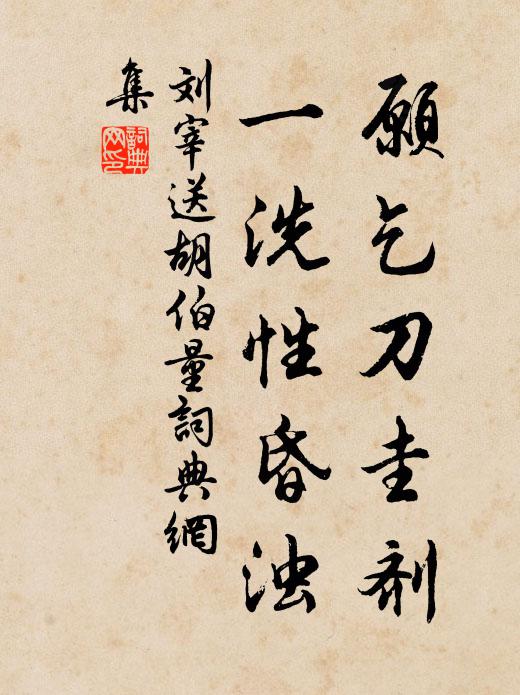 願乞刀圭剂
一洗性昏浊
刘宰送胡伯量詞典網
集
詞典
网印